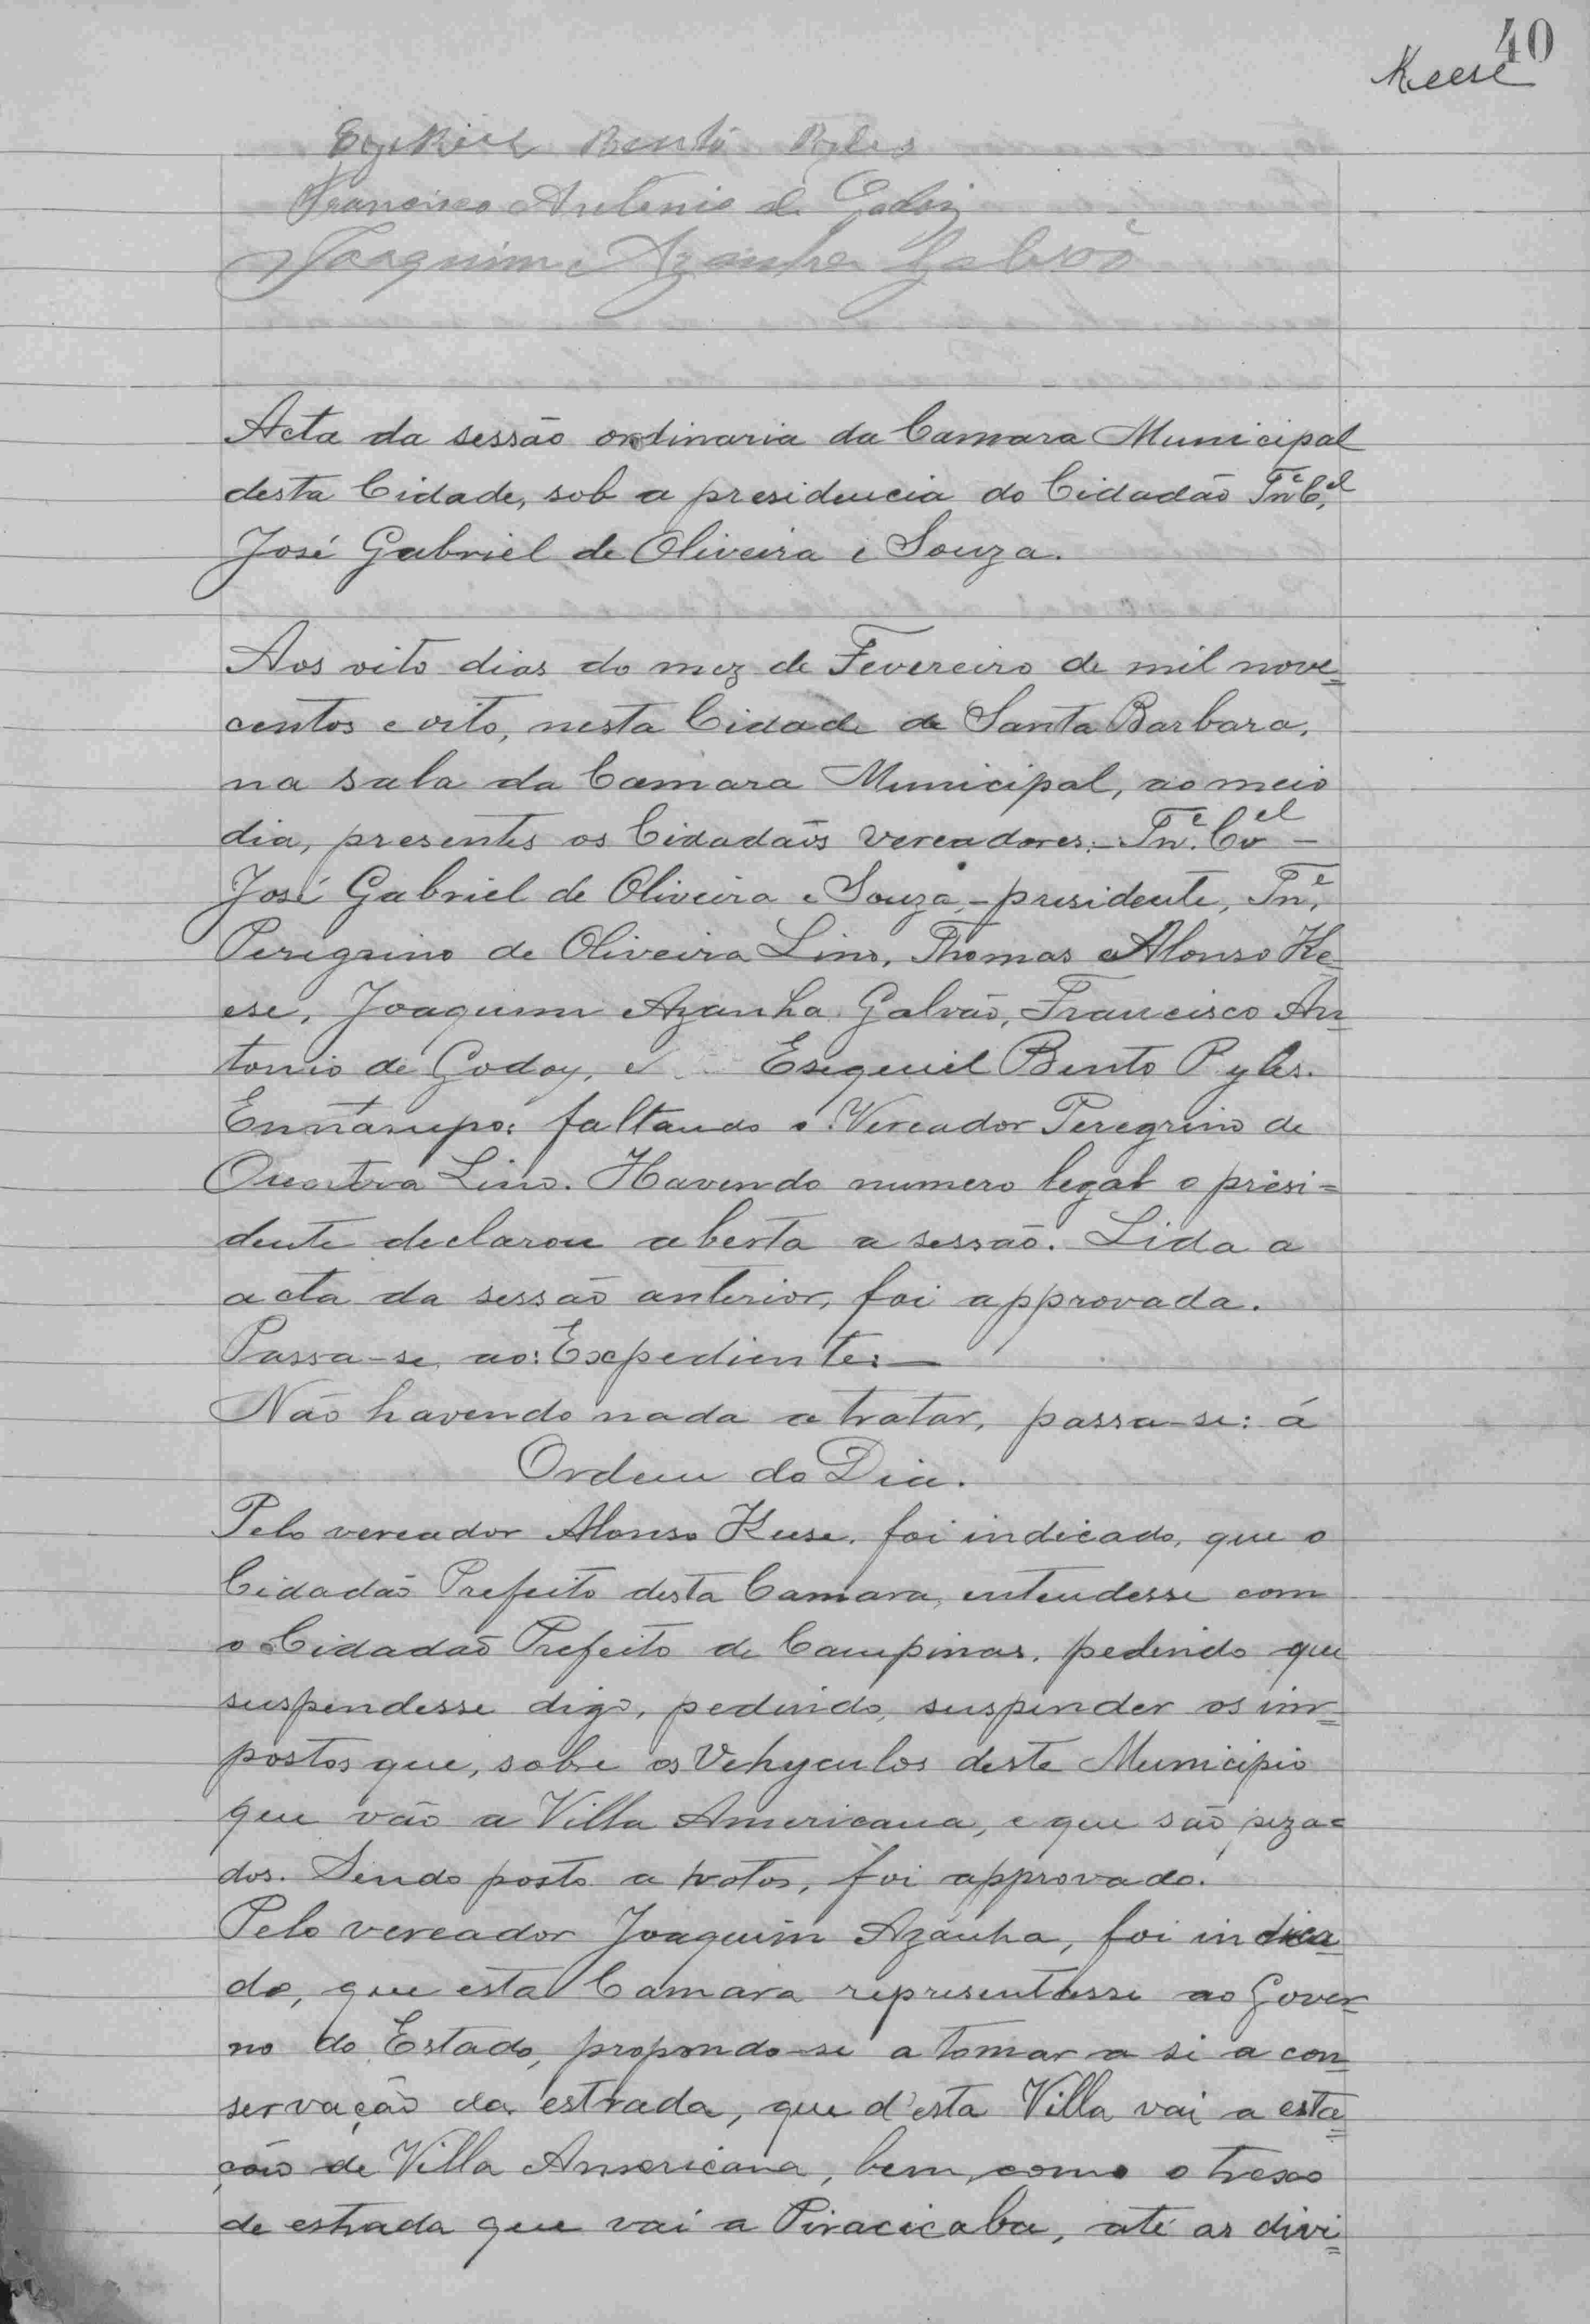 40
Keese
Ezekiel Bento Pyles
Francisco Antonio de Godoy
Joaquim Azanha Galvão
Acta da sessão ordinaria da Camara Municipal
desta Cidade, sob a presidencia do Cidadão Tne. Cel.
José Gabriel de Oliveira e Souza.
Aos oito dias do mez de Fevereiro de mil nove=
centos e oito, nesta Cidade de Santa Barbara,
na sala da Camara Municipal, ao meio
dia, presentes os Cidadãos vereadores:- Tne. Coel -
José Gabriel de Oliveira e Souza,- presidente, Tne.
Peregrino de Oliveira Lino, Thomas Alonso Ke-
ese, Joaquim Azanha Galvão, Francisco An-
tonio de Godoy, e Esequiel Bento Pyles.
faltando o Vereador Peregrino de
Lino. Havendo numero legal o presi=
dente declarou aberta a sessão. Lida a
acta da sessão anterior, foi approvada.
Passa-se ao: Expediente:-
Não havendo nada a tratar, passa-se: á
Ordem do Dia.
Pelo vereador Alonso Keese, foi indicado, que o
Cidadão Prefeito desta Camara, entendesse com
o Cidadão Prefeito de Campinas, pedindo que
suspendesse digo, pedindo, suspender os im=
postos que, sobre os Vehyculos deste Municipio
que vão a Villa Americana, e que são peza=
dos. Sendo posto a votos, foi approvado.
Pelo vereador Joaquim Azanha, foi indica-
do, que esta Camara representasse ao Gover-
no do Estado, propondo-se a tomar a si a con-
servação da estrada, que d'esta Villa vai a esta=
ção de Villa Americana, bem como o trexo
de estrada que vai a Piracicaba, até as divi=